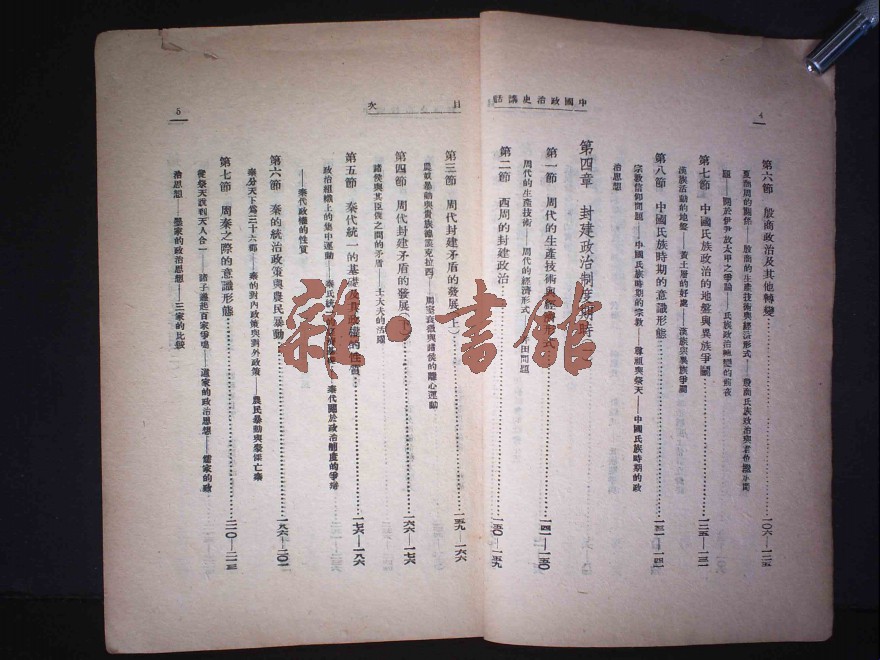 中國政治史講話
4
第六節 殷商政治及其他轉變……一〇六—一二五
夏商周的關係——殷商的生產技術與經濟形式——殷商氏族政治與
題——關於伊尹放太甲之爭論——氏族政治轉變的前夜
第七節 中國氏族政治的地盤與異族爭鬭……一二五—一三一
漢族活動的地盤——黃土層的好處——漢族與異族爭鬭
第八節 中國氏族時期的意識形態……一三一—一四一
宗教信仰問題——中國氏族時期的宗教——尊祖與祭天——中國氏族時期的政
治思想
第四章 封建政治制度期時
第一節 周代的生產技術與經濟形式……一四一—一五〇
周代的生產技術——周代的經濟形式——田問題
第二節 西周的封建政治……一五〇—一五九
目次
5
第三節 周代封建矛盾的發展(上)……一五九—一六六
農奴暴動與貴族德謨克拉西——周室衰微與諸侯的離心運動
第四節 周代封建矛盾的發展(下)……一六六—一七六
諸侯與其臣僚之間的矛盾——士大夫的活躍
第五節 秦代統一的基礎及其政權的性質……一七六—一八六
政治組織上的集中運動——秦氏統一的——秦代關於政治制度的爭辯
——秦代政權的性質
第六節 秦的統治政策與農民暴動……一八六—二〇一
秦分天下為三十六郡——秦的對內政策與對外政策——農民暴動與豪傑亡秦
第七節 周秦之際的意識形態……二一〇—二一三
從祭天說到天人合一——諸子蠭起百家爭鳴——道家的政治思想——儒家的政
治思想——墨家的政治思想——三家的比較
雜·書館